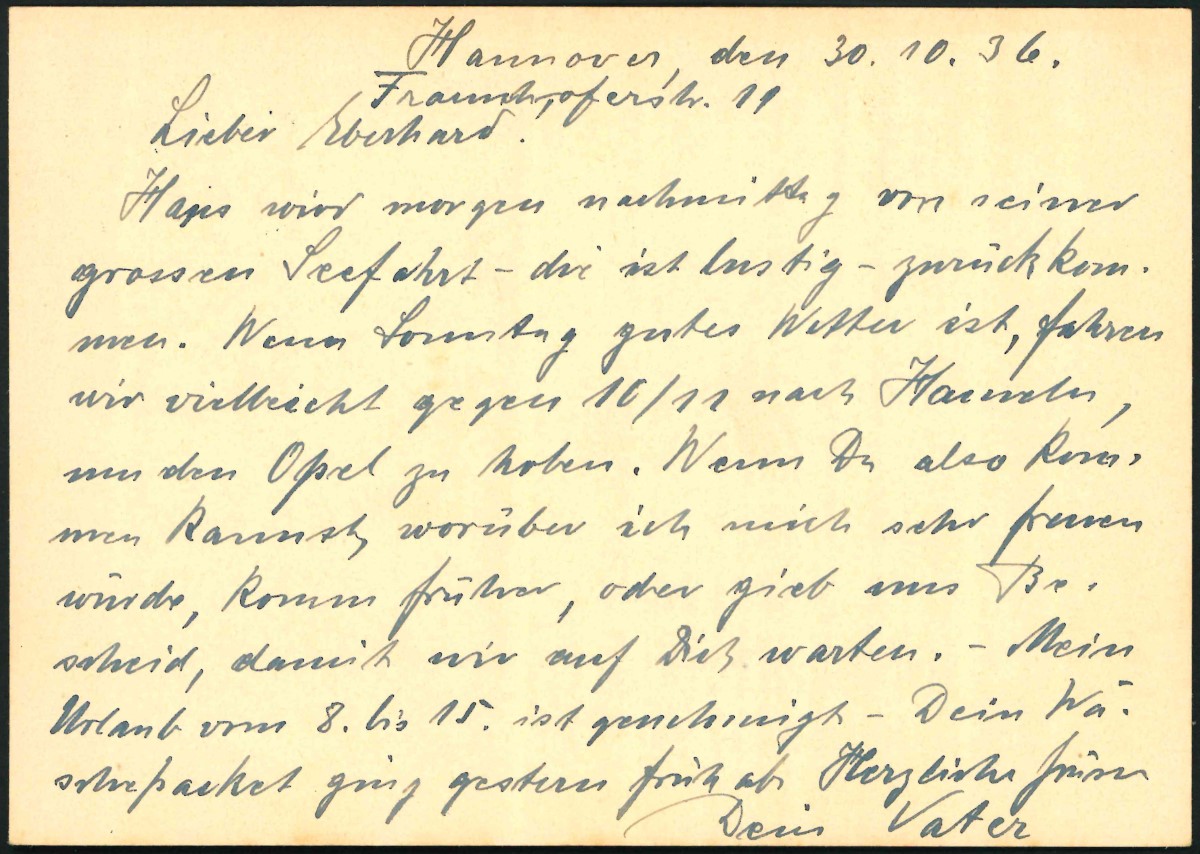 Hannover, den 30. 10. 36.
Fraunhoferstr. 11
Lieber Eberhard.
Hans wird morgen nachmittag von seiner
grossen Seefahrt - die ist lustig - zurückkom-
men. Wenn Sonntag gutes Wetter ist, fahren
wir vielleicht gegen 10/11 nach Hameln,
um den Opel zu holen. Wenn Du also kom-
men kannst, worüber ich mich sehr freuen
würde, komm früher, oder gieb uns Be-
scheid, damit wir auf Dich warten. - Mein
Urlaub vom 8. bis 15. ist genehmigt - Dein Wä-
schepacket ging gestern früh ab. Herzliche Grüsse
Dein Vater